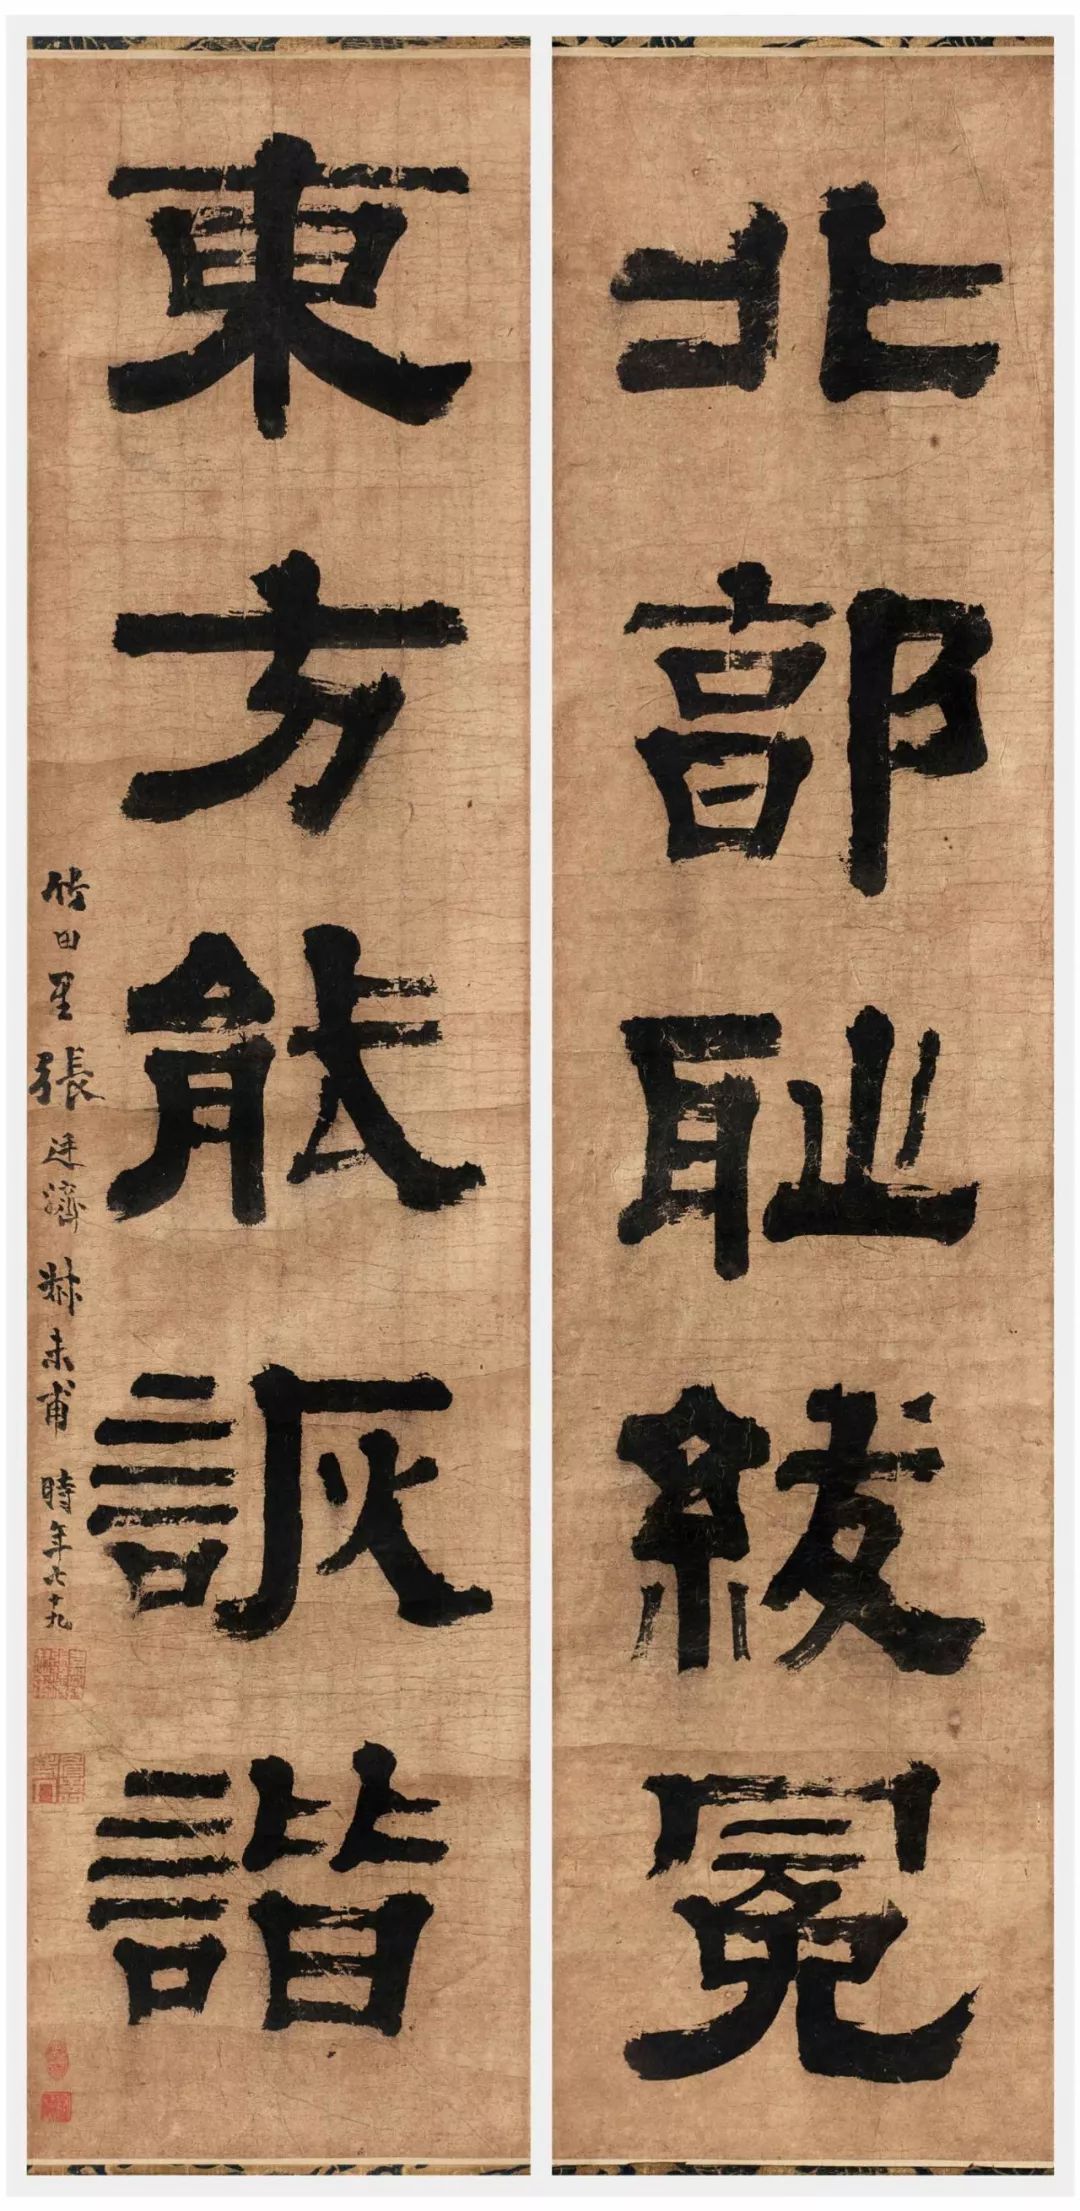 北郭耻紱冕
東方能詼諧
竹田里張廷濟叔未甫時年十九